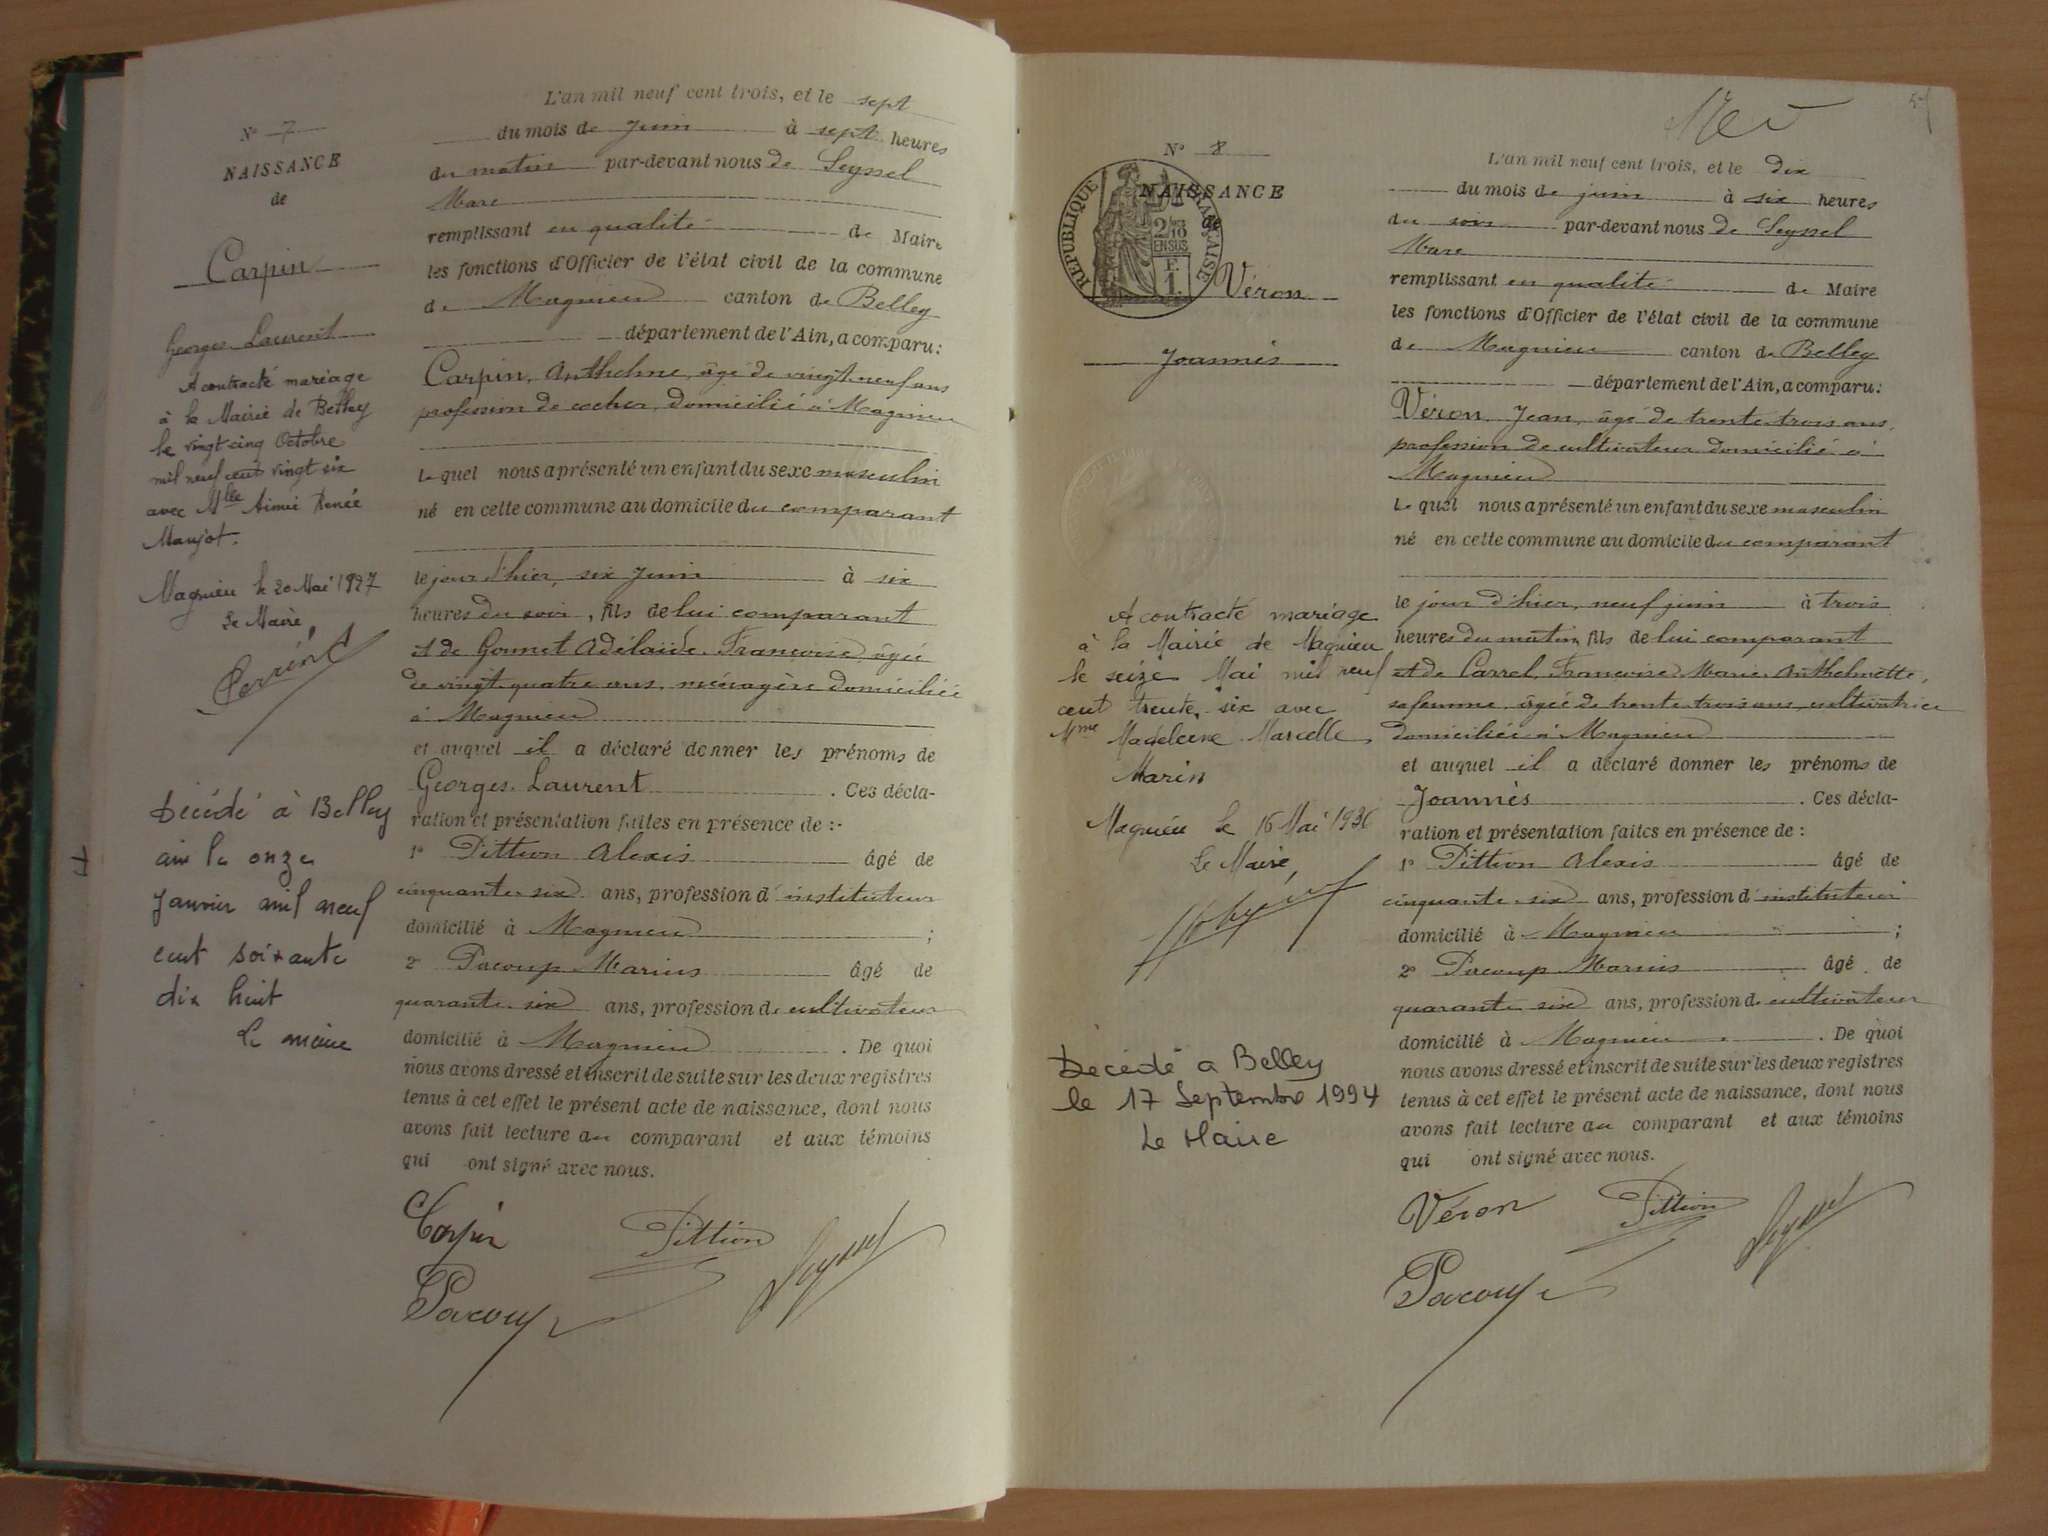 N° 7
NAISSANCE
de
Carpin
Georges Laurent
A contracté mariage
à la Mairie de Belley
le vingt cinq Octobre
mil neuf cent vingt six
avec Mlle Aimée Renée
Maujot.
Magnieu le 20 Mai 1927
Le Maire,
Décédé à Belley
ain le onze
Janvier mil neuf
cent soixante
dix huit
Le maire
L'an mil neuf cent trois, et le sept
du mois de juin à sept heures
du matin par-devant nous de Seyssel
Marc
remplissant en qualité de Maire
les fonctions d'Officier de l'état civil de la commune
de Magnieu canton de Belley
département de l'Ain, a comparu :
Carpin, Anthelme, âgé de vingt-neuf ans
profession de cocher, domicilié à Magnieu
Lequel nous a présenté un enfant du sexe masculin
né en cette commune au domicile du comparant
le jour d'hier, six juin à six
heures du soir, fils de lui comparant
et de Gonnet Adélaïde Françoise, âgée
de vingt-quatre ans, ménagère domiciliée
à Magnieu
et auquel il a déclaré donner les prénoms de
Georges Laurent . Ces décla-
ration et présentation faites en présence de :
1° Pittion Alexis âgé de
cinquante-six ans, profession d'instituteur
domicilié à Magnieu ;
2° Pacoup Marius âgé de
quarante-six ans, profession de cultivateur
domicilié à Magnieu . De quoi
nous avons dressé et inscrit de suite sur les deux registres
tenus à cet effet le présent acte de naissance, dont nous
avons fait lecture au comparant et aux témoins
qui ont signé avec nous.
Carpin Pittion Seyssel
Pacoup
N° 8
NAISSANCE
de
REPUBLIQUE FRANÇAISE
2/10
EN SUS
F.
1
Véron
Joannès
A contracté mariage
à la Mairie de Magnieu
le seize Mai mil neuf
cent trente six avec
Mme Madeleine Marcelle
Marin
Magnieu le 16 Mai 1936
Le Maire,
Décédé a Belley
le 17 Septembre 1994
Le Maire
L'an mil neuf cent trois, et le dix
du mois de juin à six heures
du soir par-devant nous de Seyssel
Marc
remplissant en qualité de Maire
les fonctions d'Officier de l'état civil de la commune
de Magnieu canton de Belley
département de l'Ain, a comparu :
Véron, Jean, âgé de trente-trois ans,
profession de cultivateur domicilié à
Magnieu
Lequel nous a présenté un enfant du sexe masculin
né en cette commune au domicile du comparant
le jour d'hier, neuf juin à trois
heures du matin, fils de lui comparant
et de Carrel, Françoise Marie Anthelmette,
sa femme, âgée de trente-trois ans, cultivatrice
domiciliée à Magnieu
et auquel il a déclaré donner les prénoms de
Joannès . Ces décla-
ration et présentation faites en présence de :
1° Pittion Alexis âgé de
cinquante-six ans, profession d'instituteur
domicilié à Magnieu ;
2° Pacoup Marius âgé de
quarante-six ans, profession de cultivateur
domicilié à Magnieu . De quoi
nous avons dressé et inscrit de suite sur les deux registres
tenus à cet effet le présent acte de naissance, dont nous
avons fait lecture au comparant et aux témoins
qui ont signé avec nous.
Véron Pittion Seyssel
Pacoup